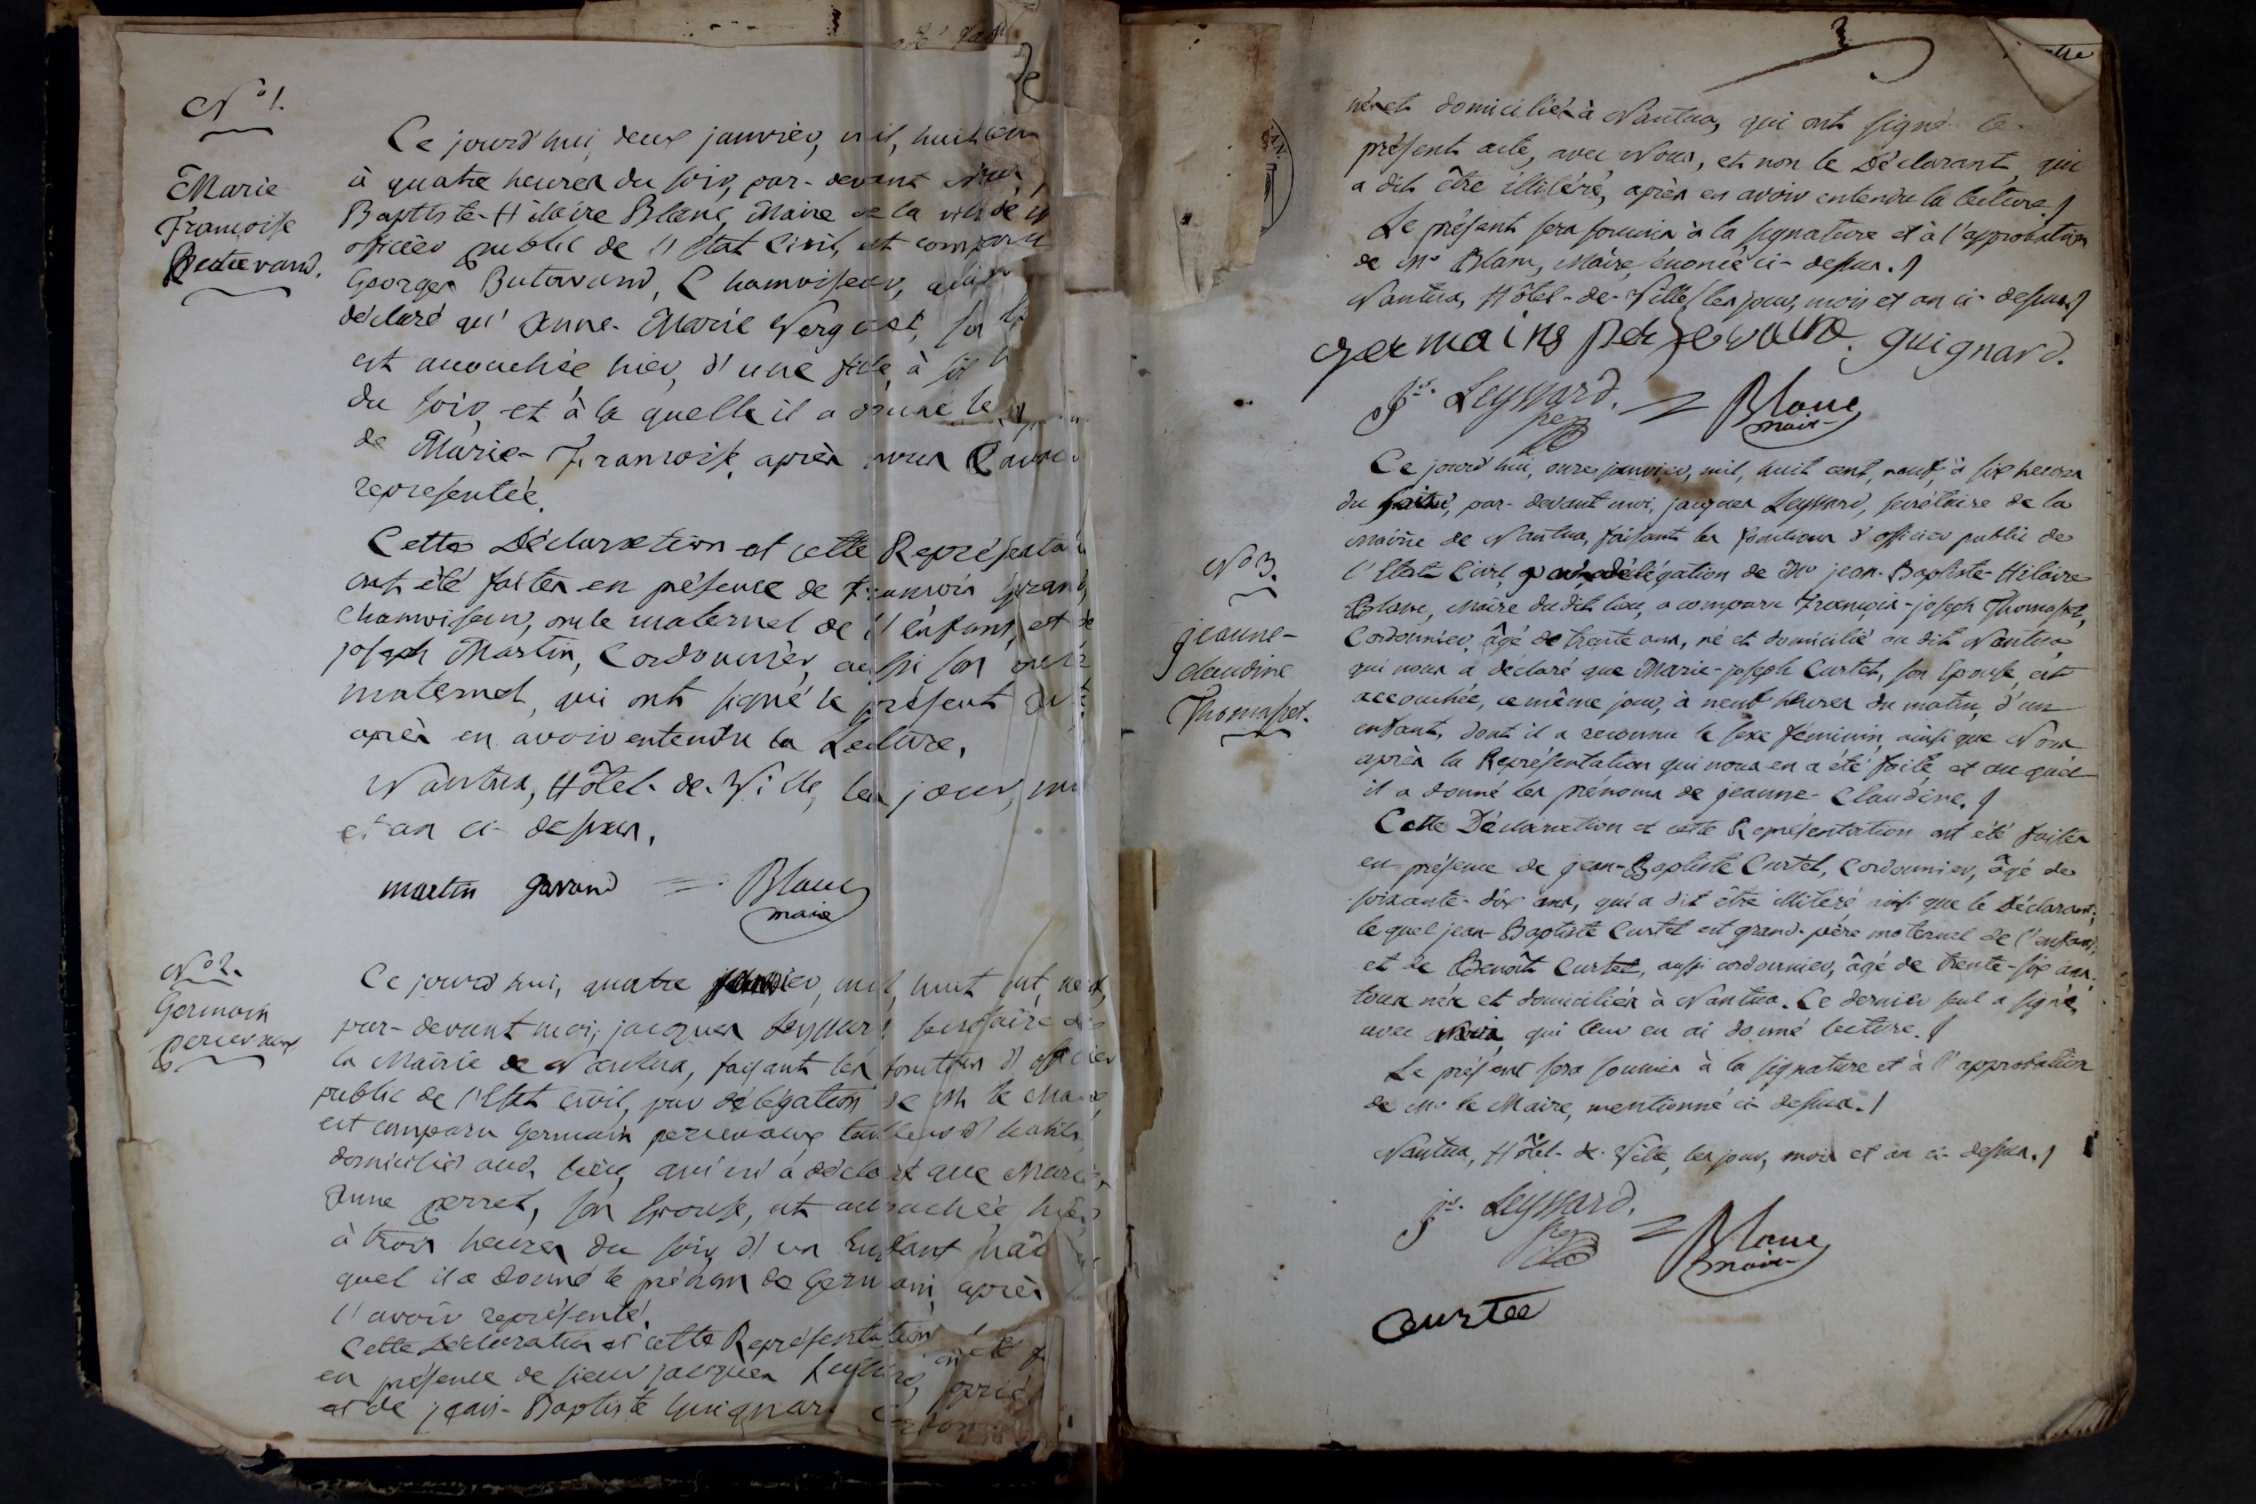 N° 1.
Marie
Françoise
Butavand.
Ce jourd'hui, deux janvier, mil, huit cent
à quatre heures du soir, par-devant nous,
Baptiste-Hilaire Blanc, Maire de la ville de
officier public de l'Etat Civil, est comparu
Georges Butavand, Chamoiseur,
déclaré qu'Anne-Marie
est accouchée hier, d'une fille, à six
du soir, et à la quelle il a donné les
de Marie-Françoise, après nous l'avoir
représentée.
Cette Déclaration et cette Représentation
ont été faites en présence de François
Chamoiseur, oncle maternel de l'enfant, et de
joseph Martin, Cordonnier, aussi son oncle
maternel, qui ont signé le présent
après en avoir entendu la Lecture.
Nantua, Hôtel-de-Ville, les jour,
et an ci-dessus.
martin gavand = Blanc
maire
N° 2.
Germain
percevaux
Ce jourd'hui, quatre janvier, mil, huit cent, neuf,
par-devant moi, jacques Leyssard secrétaire de
la Mairie de Nantua, faisant les fonctions d'officier
public de l'Etat civil, par délégation de Mr le Maire,
est comparu Germain percevaux tailleur d'habits,
domicilié aud. lieu, qui m'a déclaré que Marie-
Anne perret, son Epouse, est accouchée, hier
à trois heures du soir, d'un Enfant mâle
quel il a donné le prénom de Germain, après
l'avoir représenté.
Cette Déclaration et cette Représentation ont été
en présence de sieur jacques Leyssard,
et de jean-Baptiste Guignard
3
nés et domiciliés à Nantua, qui ont signé le
présent acte, avec Nous, et non le Déclarant, qui
a dit être illitéré, après en avoir entendu la lecture./
Le présent sera soumis à la signature et à l'approbation
de Mr Blanc, Maire, énoncé ci-dessus./
Nantua, Hôtel-de-Ville, les jour, mois et an ci-dessus/
germains percevaux. guignard.
js. Leyssard. = Blanc
maire
N° 3.
jeanne-
claudine
Thomasset.
Ce jourd'hui, onze janvier, mil, huit cent, neuf, à six heures
du par-devant moi, jacques Leyssard, secrétaire de la
mairie de Nantua, faisant les fonctions d'officier public de
l'Etat Civil, par délégation de Mr jean-Baptiste-Hilaire
Blanc, Maire dudit lieu, a comparu François-joseph Thomasset,
Cordonnier, âgé de trente ans, né et domicilié au dit Nantua,
qui nous a déclaré que Marie-joseph Curtet, son Epouse, est
accouchée, ce même jour, à neuf heures du matin, d'un
enfant, dont il a reconnu le sexe féminin, ainsi que Nous
après la Représentation qui nous en a été faite, et au quel
il a donné les prénoms de jeanne-Claudine./
Cette Déclaration et cette Représentation ont été faites
en présence de jean-Baptiste Curtet, Cordonnier, âgé de
soixante-dix ans, qui a dit être illitéré ainsi que le Déclarant;
le quel jean-Baptiste Curtet est grand-père maternel de l'enfant,
et de Benoît Curtet, aussi cordonnier, âgé de trente-six ans,
tous nés et domiciliés à Nantua. Ce dernier seul a signé,
avec qui leur en ai donné lecture./
Le présent sera soumis à la signature et à l'approbation
de Mr le Maire, mentionné ci-dessus./
Nantua, Hôtel-de-Ville, les jour, mois et an ci-dessus./
js. Leyssard. = Blanc
maire
Curtet